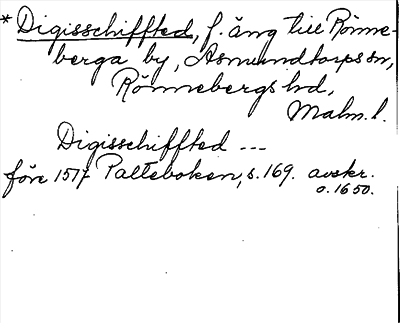 *Digisschiffted, f. äng till Rönne-
berga by, Asmundtorps sn,
Rönnebergs hd,
Malm. l.
Digisschiffted ---
före 1517 Palteboken, s. 169. avskr.
o. 1650.